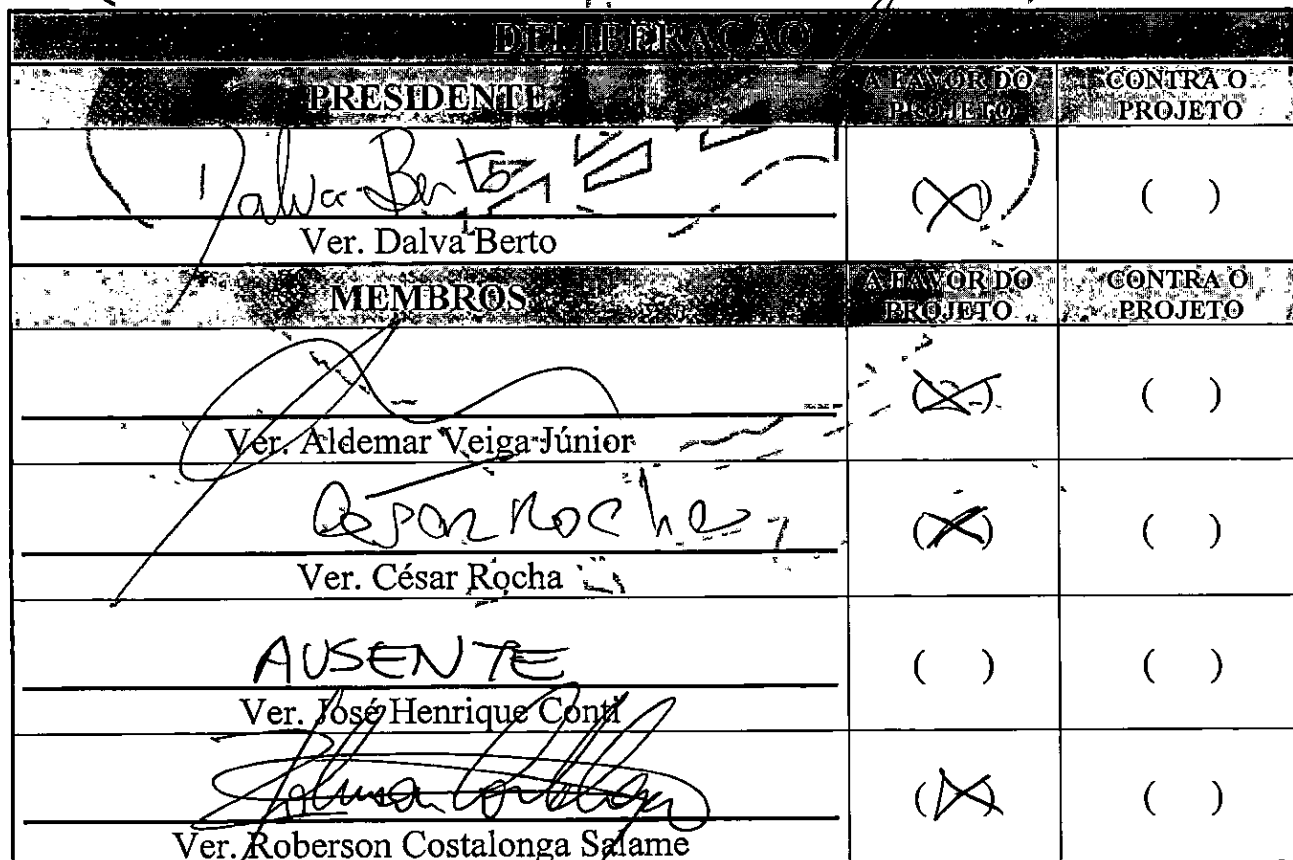 DELIBERAÇÃO
PRESIDENTE A FAVOR DO PROJETO CONTRA O PROJETO
Dalva Berto (X) ( )
Ver. Dalva Berto
MEMBROS A FAVOR DO PROJETO CONTRA O PROJETO
(X) ( )
Ver. Aldemar Veiga Júnior
Cesar Rocha (X) ( )
Ver. César Rocha
AUSENTE ( ) ( )
Ver. José Henrique Conti
(X) ( )
Ver. Roberson Costalonga Salame